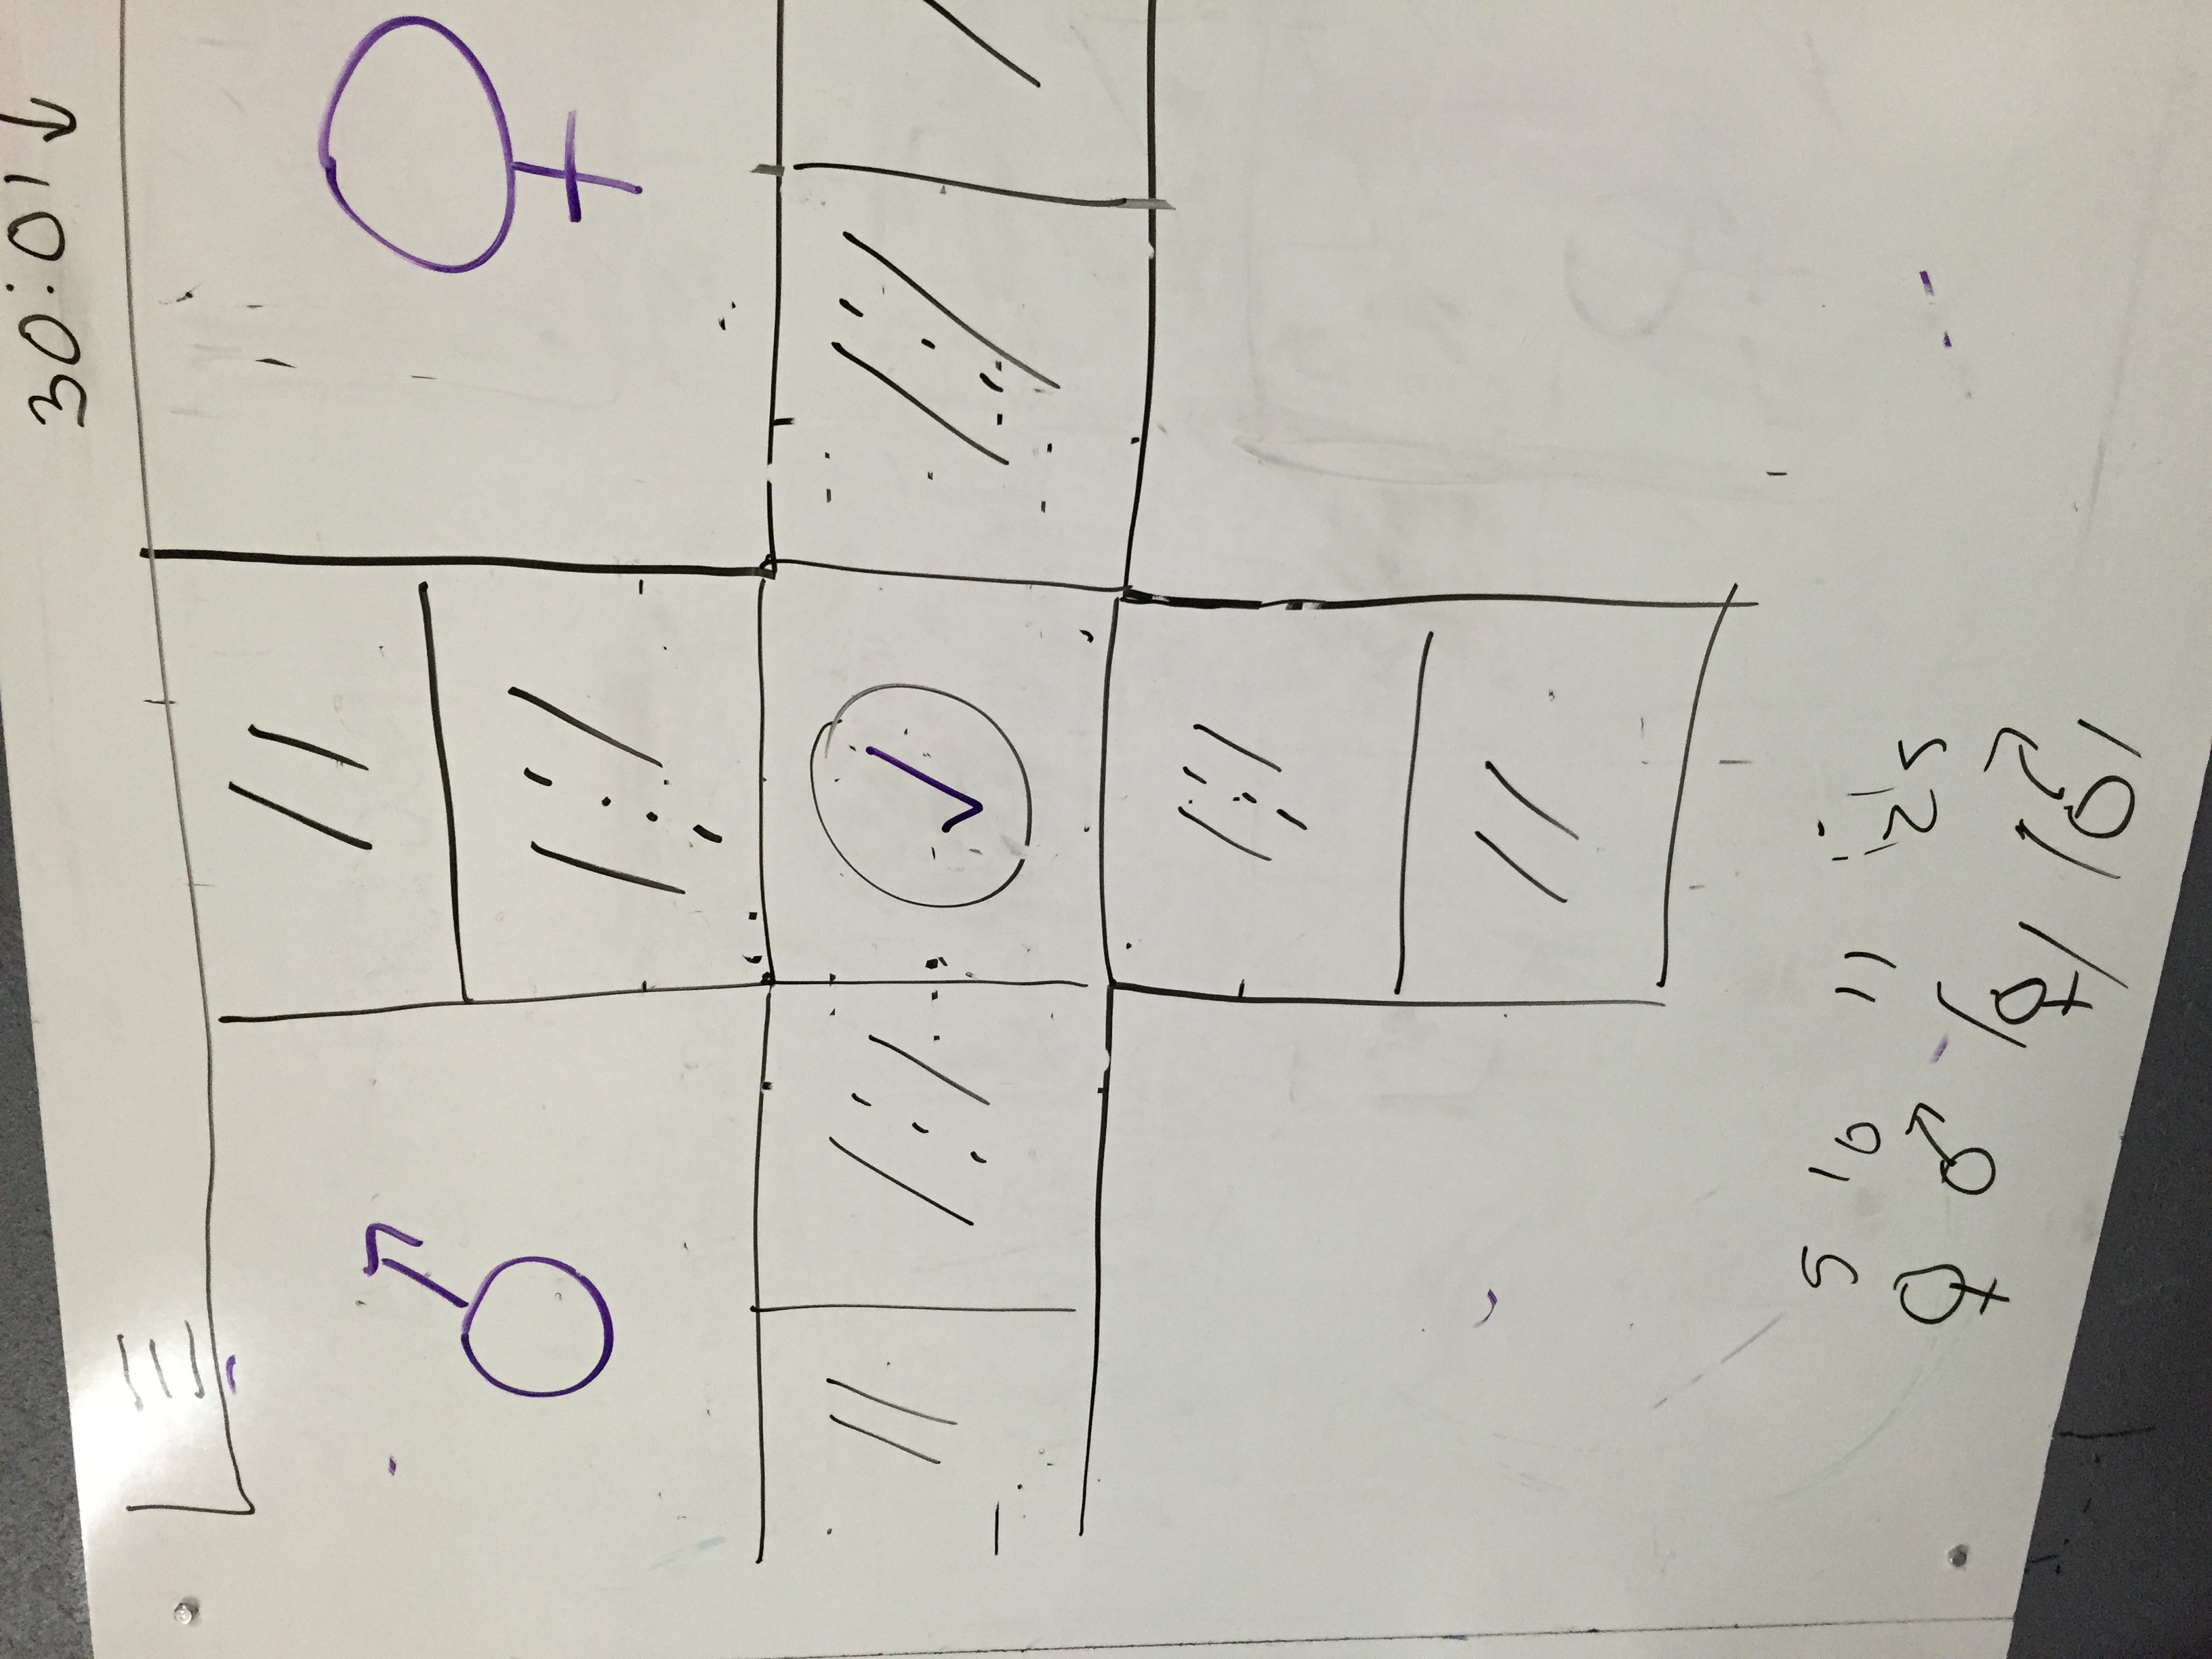 30:01 ↓
♂ ♀
✓
5 10 11
♀ ♂ /♀/ /♂/